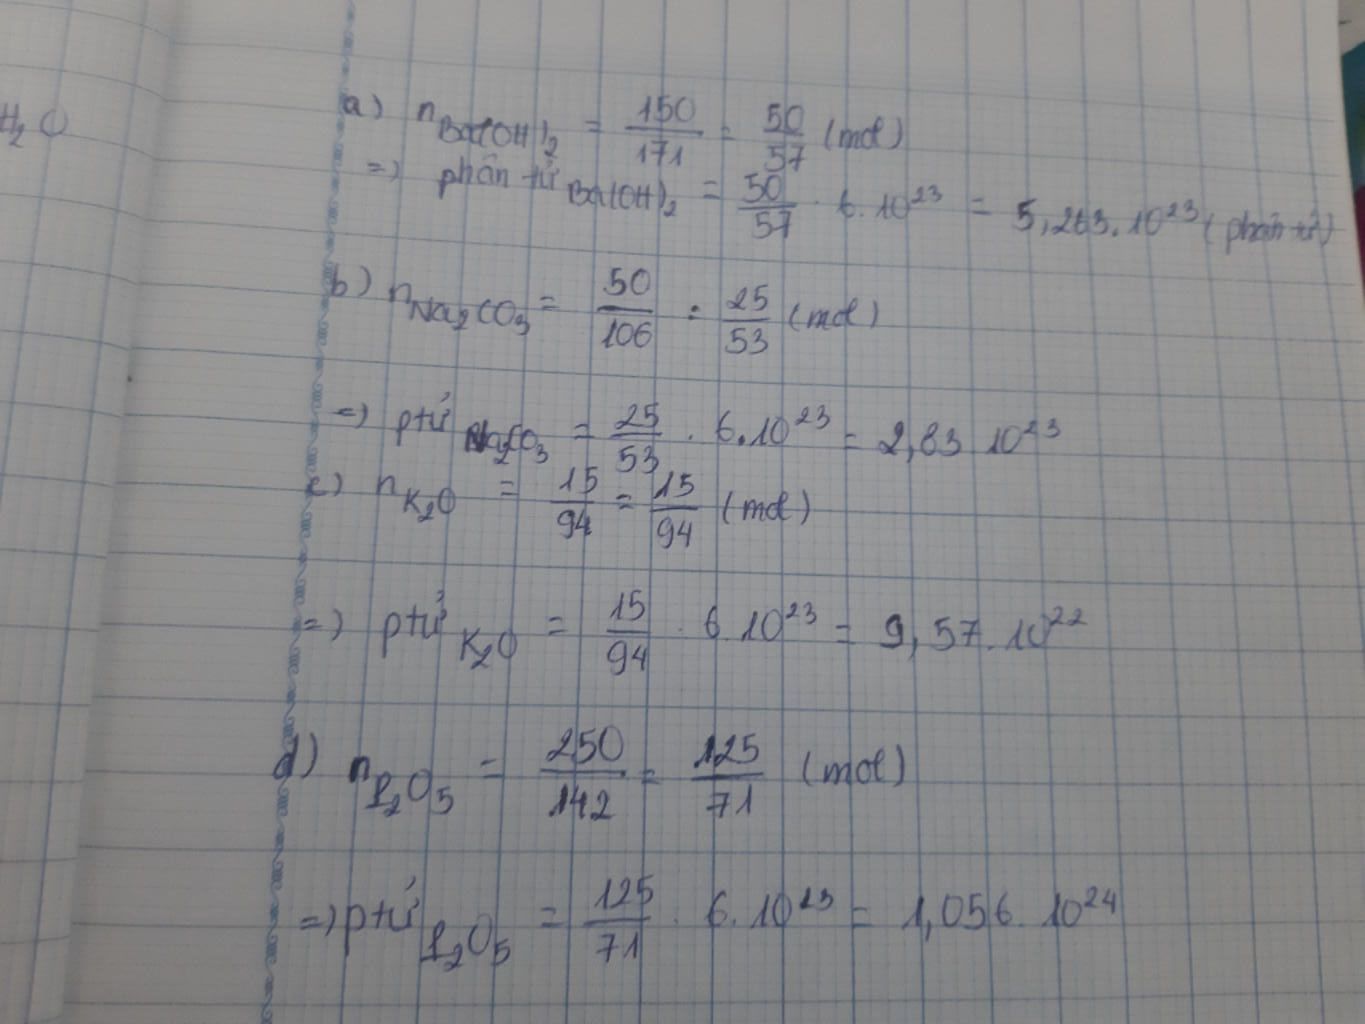 H₂O
a) n Ba(OH)₂ = 150/171 = 50/57 (mol)
=) phân tử Ba(OH)₂ = 50/57 . 6.10²³ = 5,263.10²³ (phân tử)
b) n Na₂CO₃ = 50/106 = 25/53 (mol)
=) ptử Na₂CO₃ = 25/53 . 6.10²³ = 2,83 10²³
c) n K₂O = 15/94 = 15/94 (mol)
=) ptử K₂O = 15/94 . 6.10²³ = 9,57.10²²
d) n P₂O₅ = 250/142 = 125/71 (mol)
=) ptử P₂O₅ = 125/71 . 6.10²³ = 1,056.10²⁴